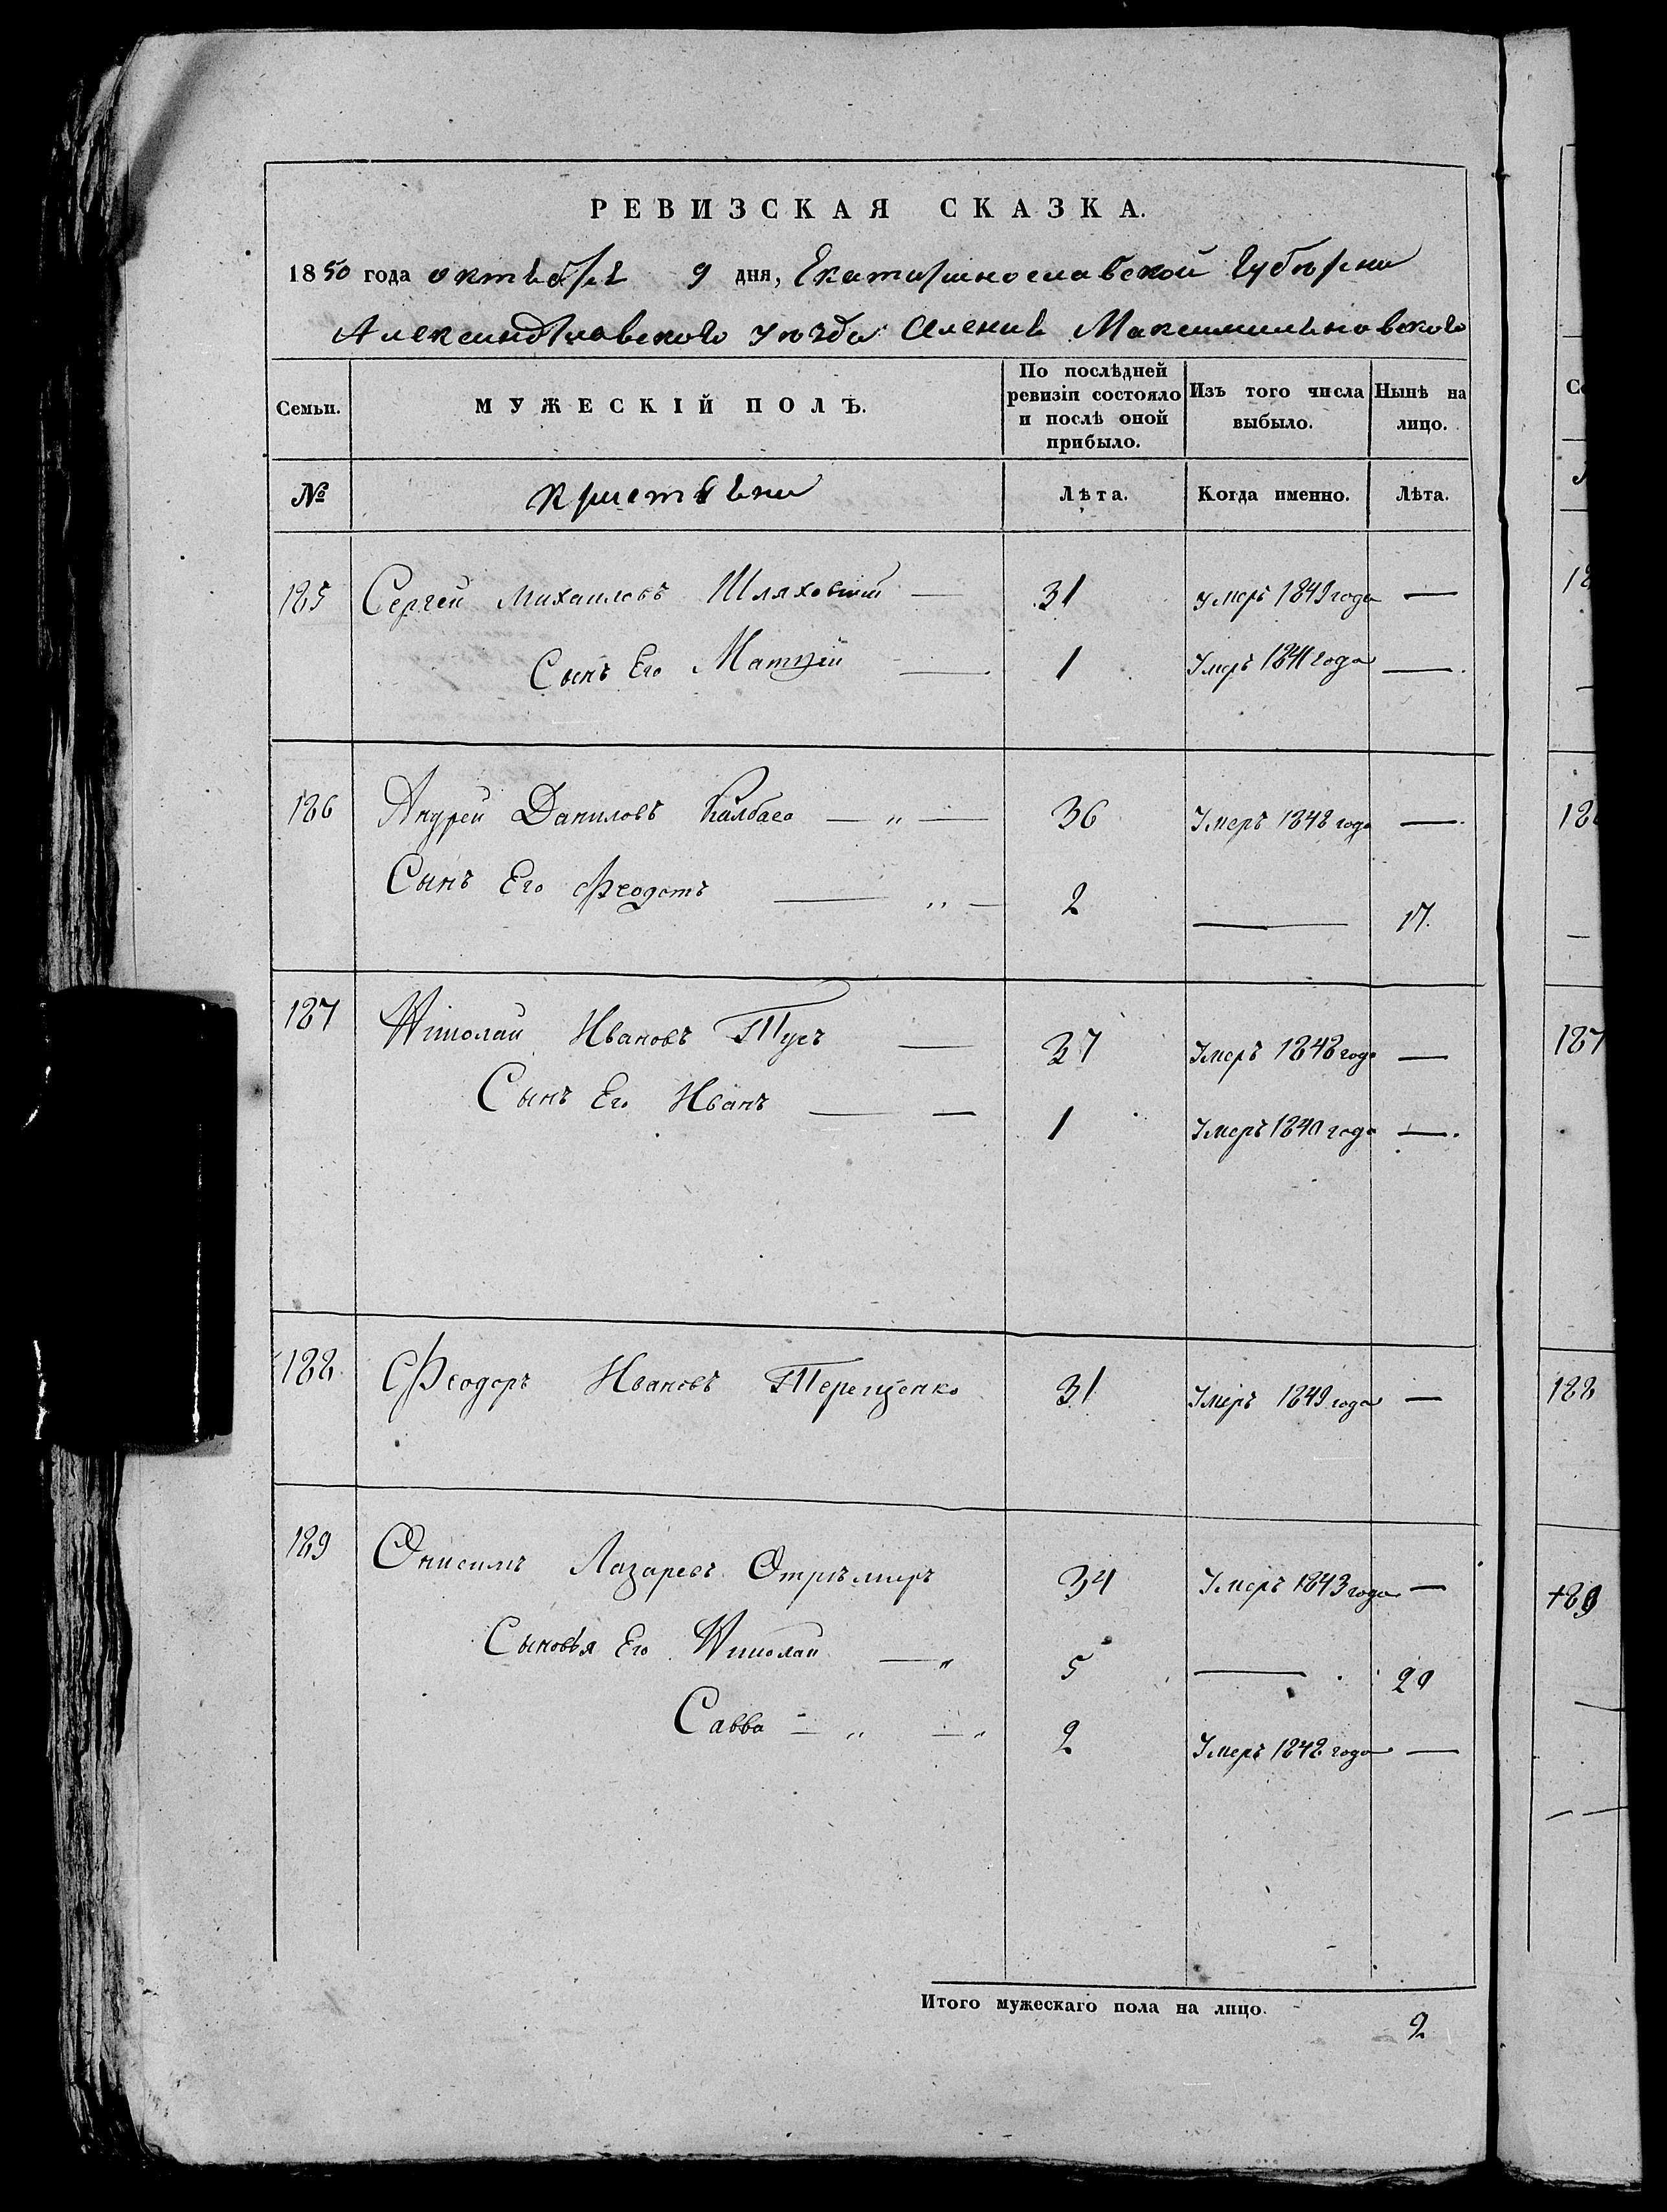 РЕВИЗСКАЯ СКАЗКА.
1850 года октября 9 дня, Екатеринославской Губерни
Александровского уезда Селения Максимильяновского
Семьи.
МУЖЕСКІЙ ПОЛЪ.
По послѣдней ревизіи состояло и послѣ оной прибыло.
Изъ того числа выбыло.
Нынѣ на лицо.
№
Лѣта.
Когда именно.
Лѣта.
185 Сергей Михаиловъ Шляховий — 31 умеръ 1849 года —
Сынъ Его Матвей — 1 Умеръ 1841 года —
186 Андрей Даниловъ — „ — 36 Умеръ 1848 года —
Сынъ Его Феодотъ — „ — 2 — 17.
187 Николай Ивановъ — 37 Умеръ 1848 года —
Сынъ Его Иванъ — — 1 Умеръ 1840 года —
188 Феодоръ Ивановъ Терещенко 31 Умеръ 1849 года —
189 Онисимъ Лазаревъ 34 Умеръ 1843 года —
Сыновья Его Николай — „ 5 — 20
Савва — „ — „ 2 Умеръ 1848 года —
Итого мужескаго пола на лицо. 2
С
№
18
18
187
188
189